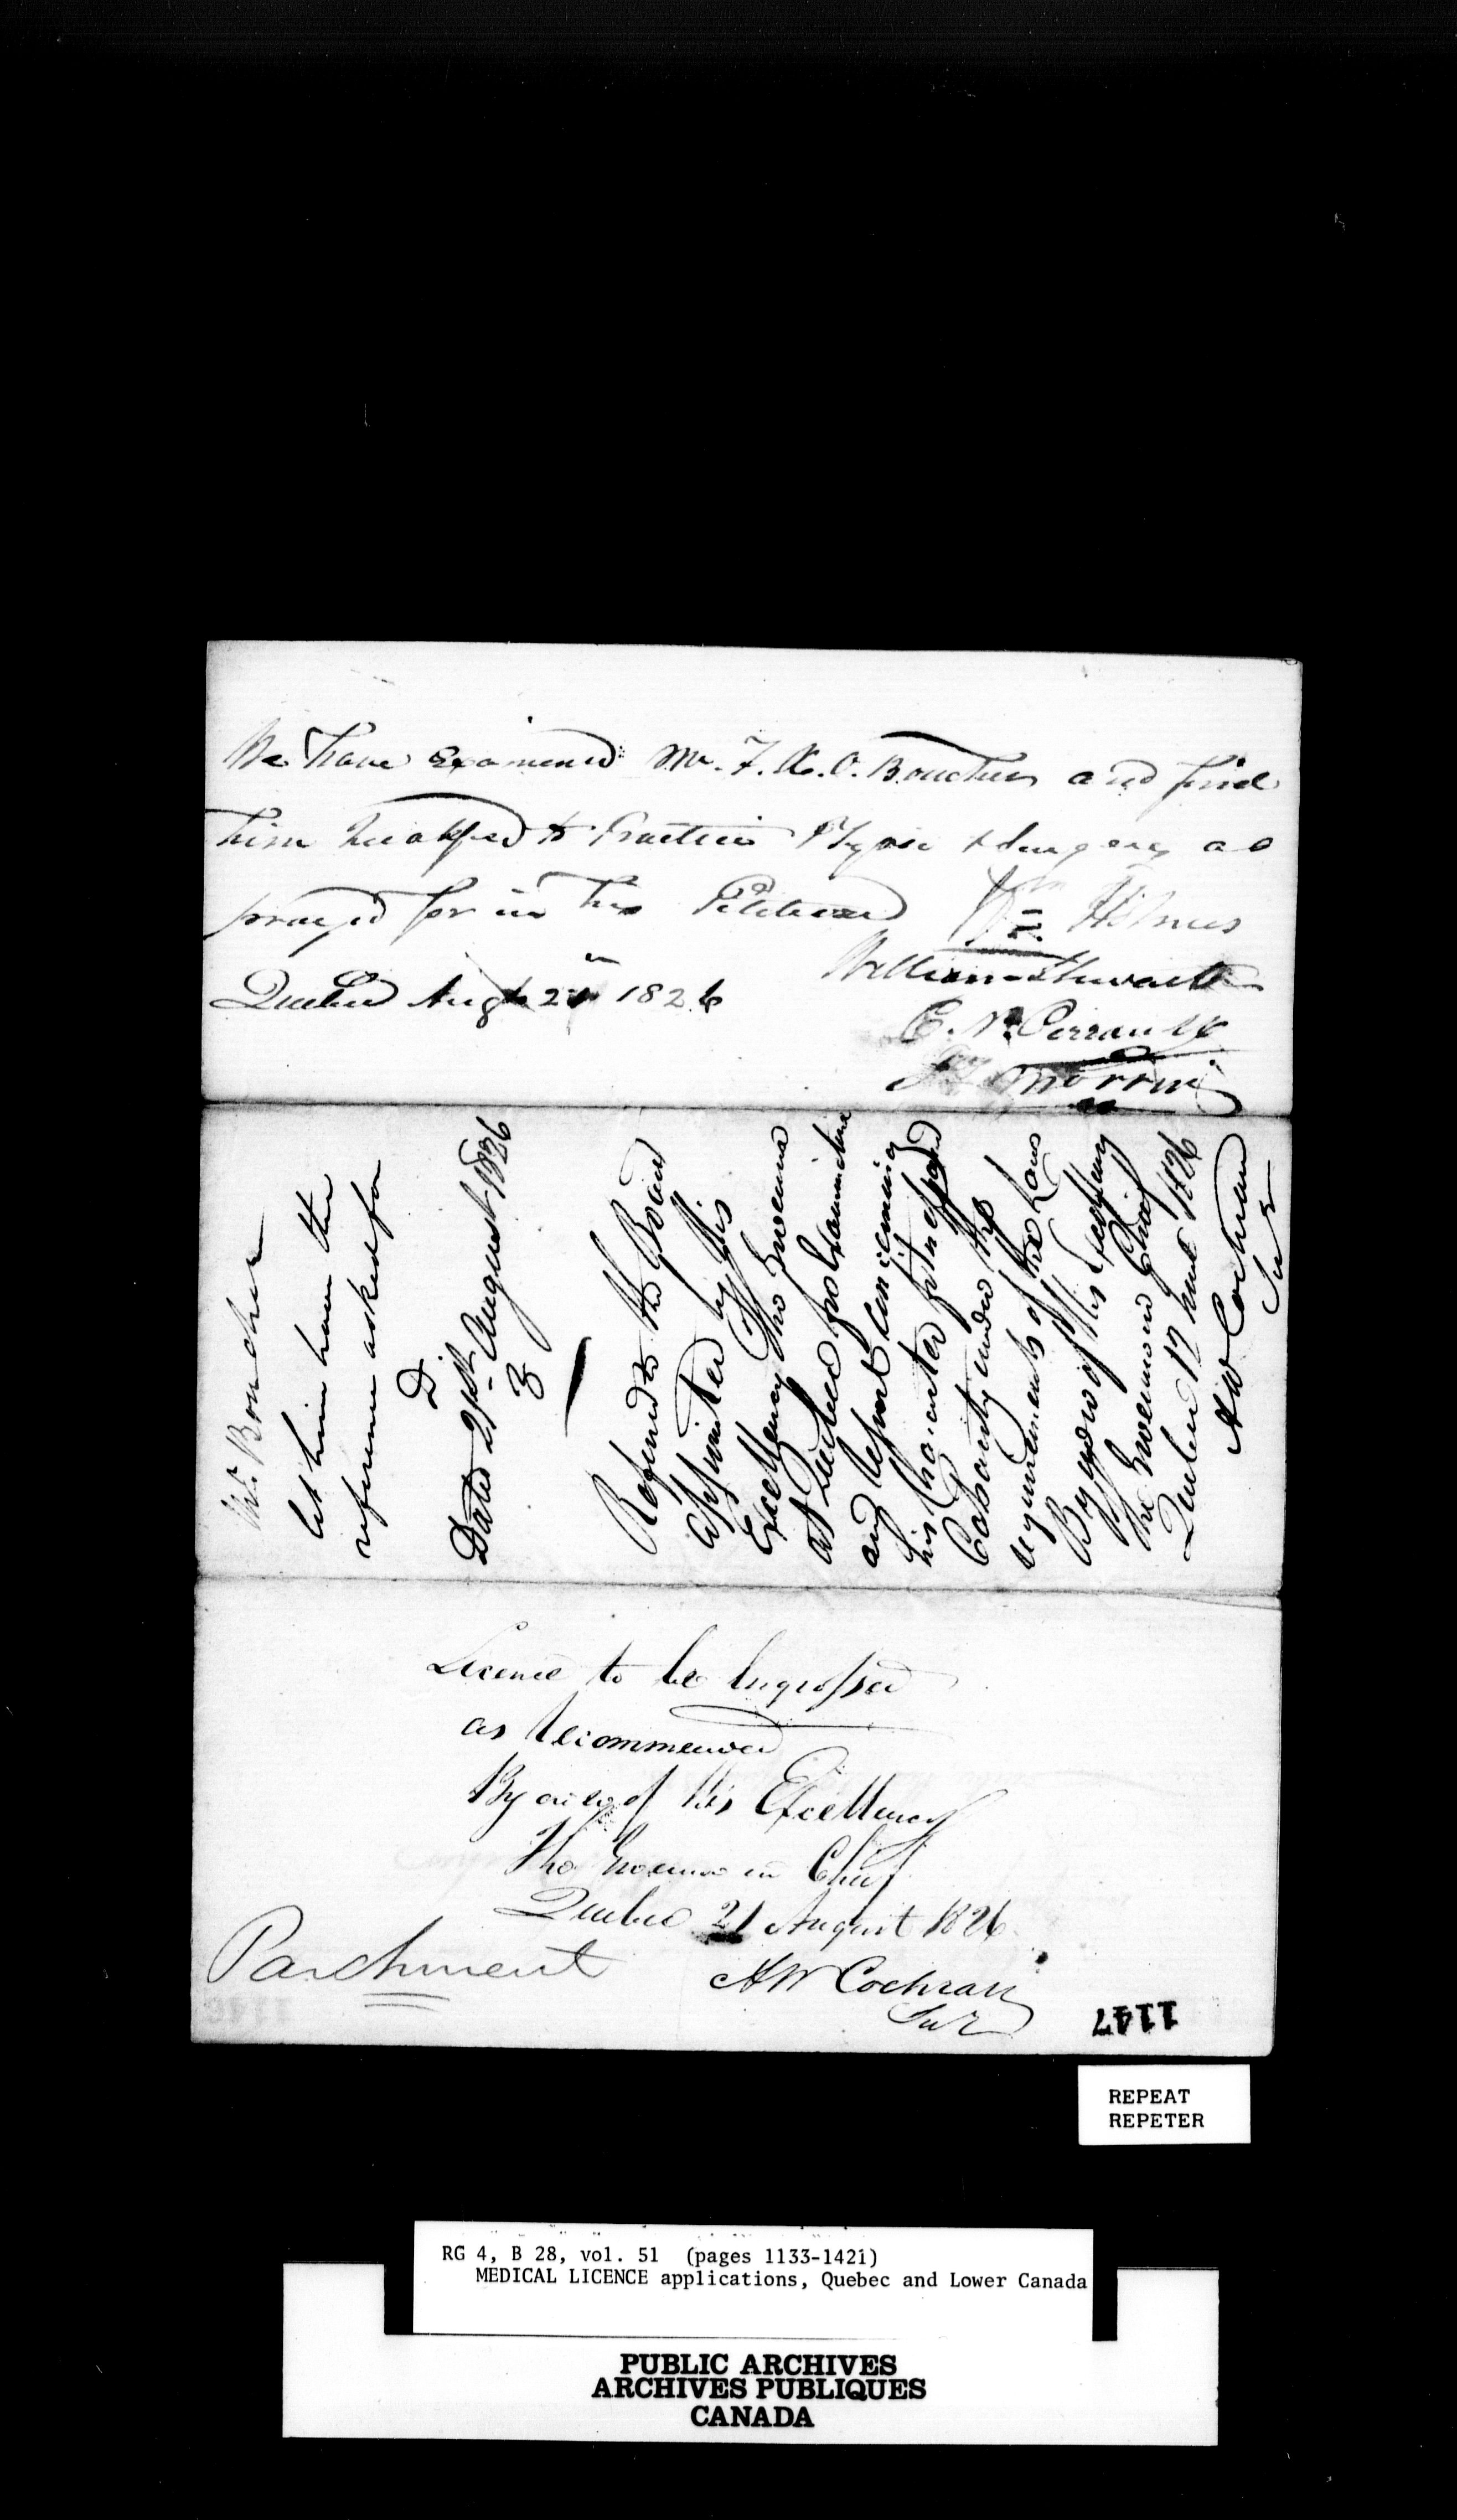 We have examined Mr. F. X. O. Boucher and find
him qualified to Practice Physic & Surgery as
prayed for in his Petition
Wm Holmes
William Thwaites
Quebec Augt 21 1826
C. N. Perrault
Jos Morrin
Mr. Boucher
let him have the
reference asked for
D.
Dated 21st August 1826
3
Referred to the Board
appointed by His
Excellency the Governor
at Quebec for Examination
and report concerning
his character fitness and
Capacity under the
requirements of the Laws
By order of His Excellency
the Governor in Chief
Quebec 17 June 1826
AW Cochran
Sec
Licence to be Engrossed
as recommended
By order of His Excellency
The Governor in Chief
Quebec 21 August 1826
AW Cochran
Secy
Parchment
1147
REPEAT
REPETER
RG 4, B 28, vol. 51 (pages 1133-1421)
MEDICAL LICENCE applications, Quebec and Lower Canada
PUBLIC ARCHIVES
ARCHIVES PUBLIQUES
CANADA